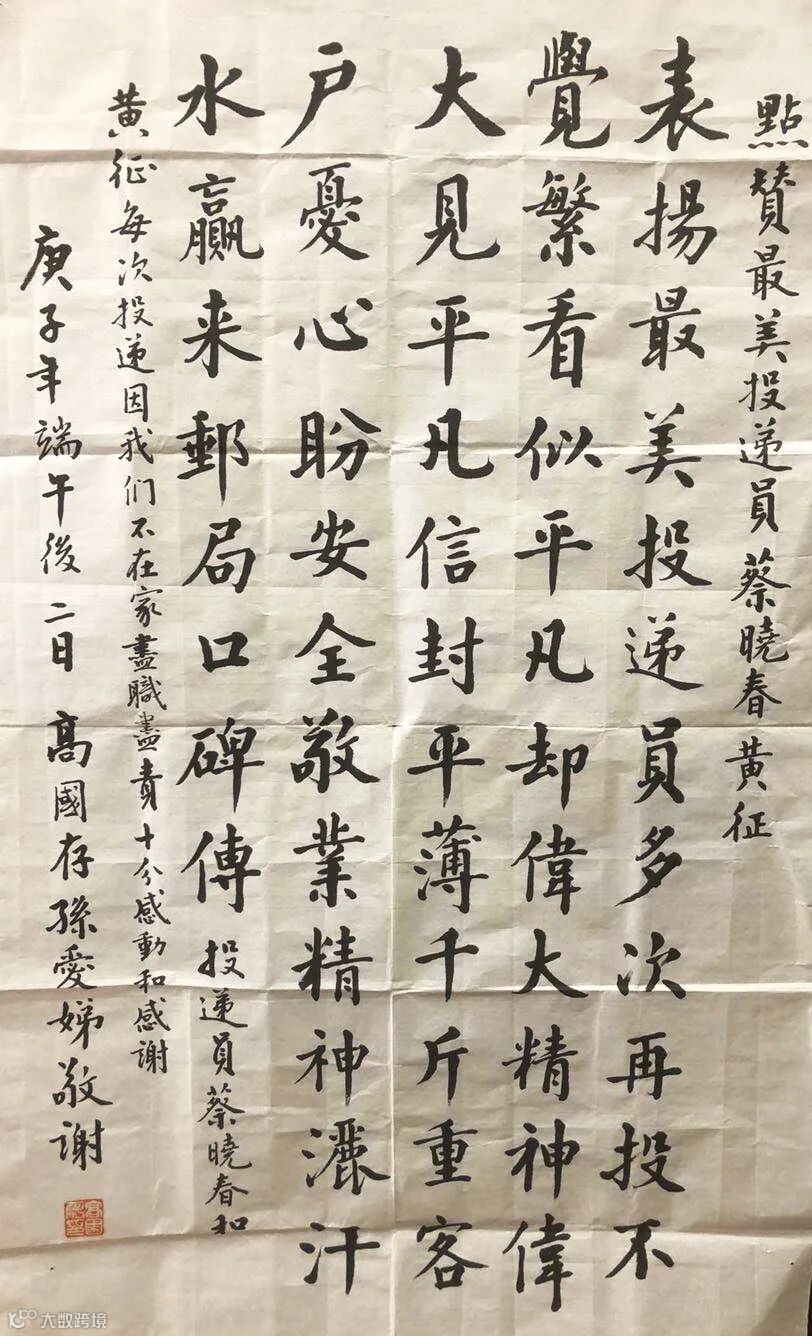 點贊最美投递員蔡曉春黄征
表揚最美投递員多次再投不
覺繁看似平凡却偉大精神偉
大見平凡信封平薄千斤重客
户憂心盼安全敬業精神灑汗
水贏来郵局口碑傳投递員蔡曉春和
黄征每次投递因我们不在家盡職盡责十分感動和感謝
庚子年端午後二日高國存孫愛娣敬謝
大数跨境